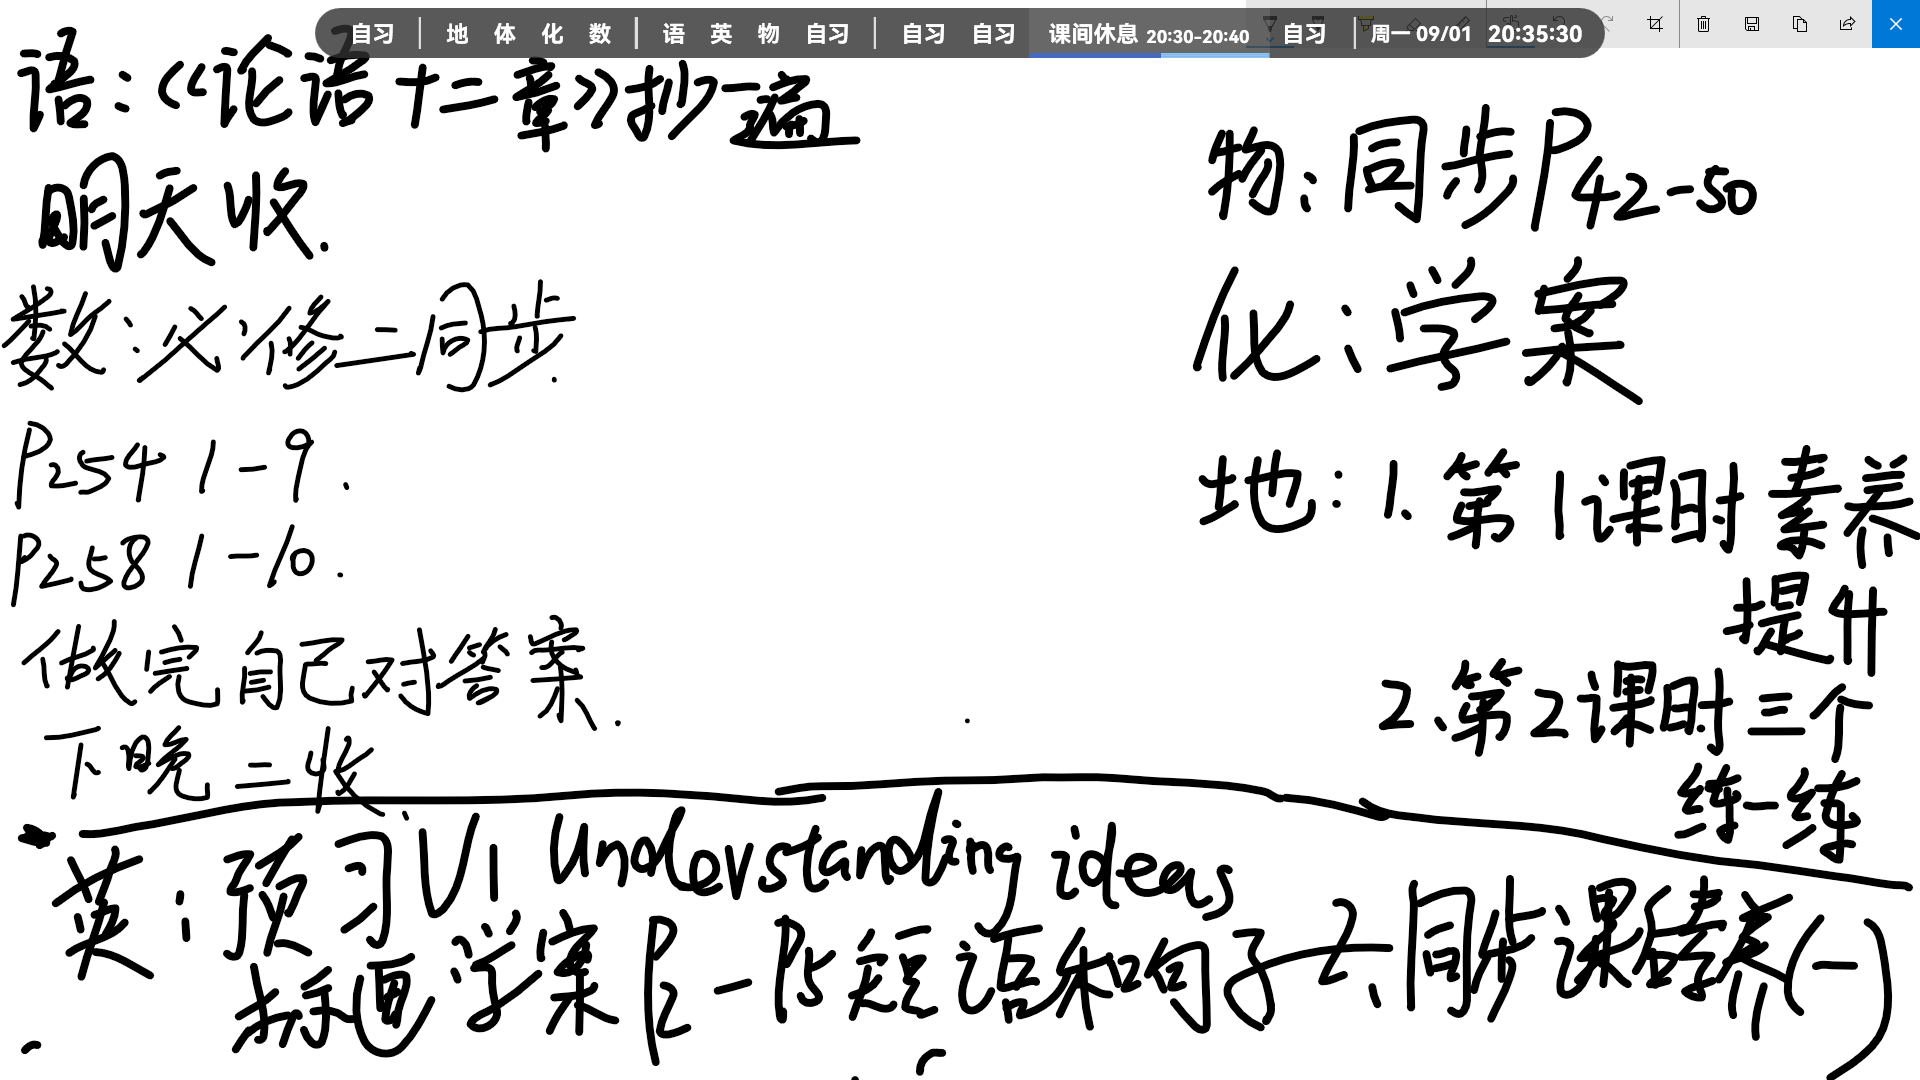 自习 | 地 体 化 数 | 语 英 物 自习 | 自习 自习 课间休息 20:30-20:40 自习 | 周一 09/01 20:35:30
语:《论语十二章》抄一遍
明天收.
数:必修二同步.
P254 1-9.
P258 1-10.
做完自己对答案.
下晚二收.
物:同步P42-50
化:学案
地:1.第1课时素养
提升
2.第2课时三个
练一练
英:预习U1 Understanding ideas
标画学案P2-P5短语和句子 2.同步课后素养(一)